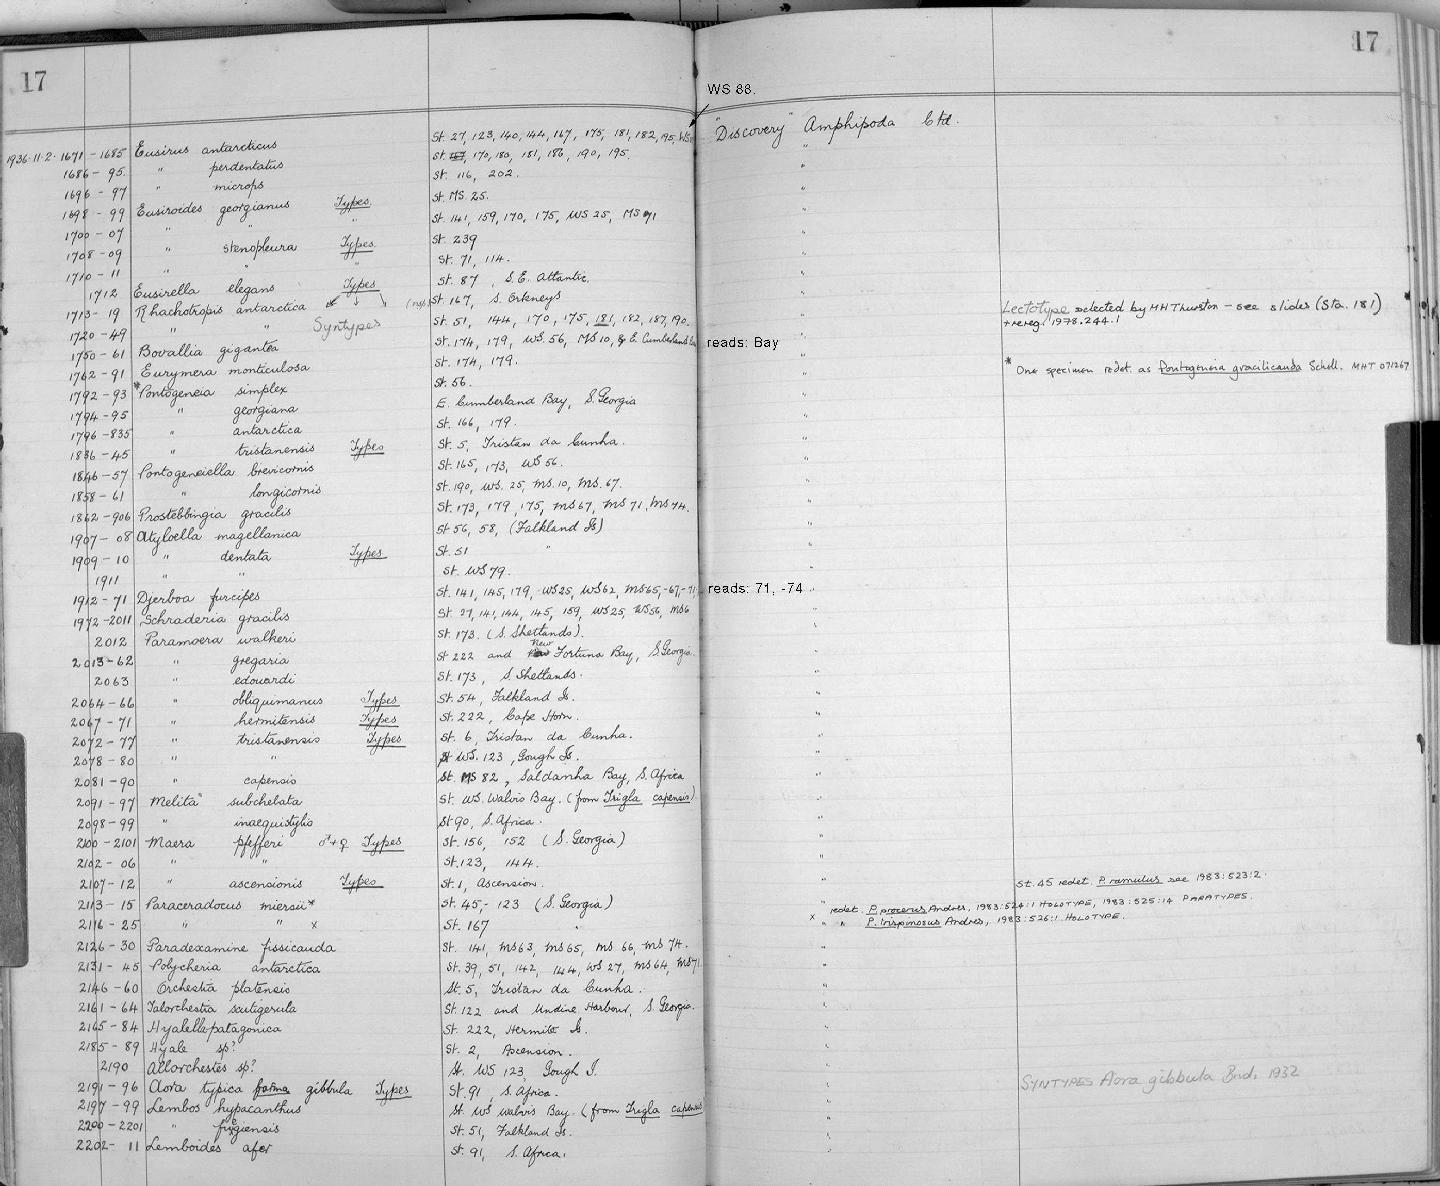 17
17
WS 88.
"Discovery" Amphipoda Ctd.
1936.11.2. 1671-1685 Eusirus antarcticus St. 27, 123, 140, 144, 167, 175, 181, 182, 195, WS
1686-95. " perdentatus St. 170, 180, 181, 186, 190, 195.
1696-97 " microps St. 116, 202.
1698-99 Eusiroides georgianus Types St. MS. 25.
1700-07 " " " St. 141, 159, 170, 175, WS 25, MS 71
1708-09 " stenopleura Types St. 239
1710-11 " " " St. 71, 114.
1712 Eusirella elegans Types St. 87, S.E. Atlantic.
1713-19 Rhachotropis antarctica St. 167, S. Orkneys
Lectotype selected by MHThurston - see slides (Sta. 181)
+ rereg. 1978.244.1
1720-49 " " Syntypes St. 51, 144, 170, 175, 181, 182, 187, 190.
1750-61 Bovallia gigantea St. 174, 179, WS. 56, MS 10, & E. Cumberland Bay
reads: Bay
1762-91 Eurymera monticulosa St. 174, 179.
* One specimen redet. as Pontogeneia gracilicauda Schell. MHT 071267
1792-93 *Pontogeneia simplex St. 56.
1794-95 " georgiana E. Cumberland Bay, S. Georgia
1796-835 " antarctica St. 166, 179.
1836-45 " tristanensis Types St. 5, Tristan da Cunha.
1846-57 Pontogeneiella brevicornis St. 165, 173, WS 56.
1858-61 " longicornis St. 190, WS. 25, MS. 10, MS. 67.
1862-906 Prostebbingia gracilis St. 173, 179, 175, MS 67, MS 71, MS 74.
1907-08 Atyloella magellanica St 56, 58, (Falkland Is)
1909-10 " dentata Types St. 51 "
1911 " " St. WS 79.
1912-71 Djerboa furcipes St. 141, 145, 179, WS25, WS62, MS65,-67,-71
reads: 71, -74
1972-2011 Schraderia gracilis St. 27, 141, 144, 145, 159, WS 25, WS 56, MS 6
2012 Paramoera walkeri St. 173. (S. Shetlands).
2013-62 " gregaria St 222 and New Fortuna Bay, S Georgia.
2063 " edouardi St. 173, S. Shetlands.
2064-66 " obliquimanus Types St. 54, Falkland Is.
2067-71 " hermitensis Types St. 222, Cape Horn.
2072-77 " tristanensis Types St. 6, Tristan da Cunha.
2078-80 " " St WS. 123, Gough Is.
2081-90 " capensis St. MS 82, Saldanha Bay, S. Africa
2091-97 Melita subchelata St. WS. Walvis Bay. (from Trigla capensis)
2098-99 " inaequistylis St 90, S. Africa.
2100-2101 Maera pfefferi ♂+♀ Types St. 156, 152 (S. Georgia)
2102-06 " " St. 123, 144.
2107-12 " ascensionis Types St. 1, Ascension.
St. 45 redet. P. ramulus see 1983:523:2.
2113-15 Paraceradocus miersii* St. 45,- 123 (S. Georgia)
* redet. P. procerus Andres, 1983:524:1 HOLOTYPE, 1983:525:14 PARATYPES.
2116-25 " " x St. 167 "
x " P. trispinosus Andres, 1983:526:1 HOLOTYPE.
2126-30 Paradexamine fissicauda St. 141, MS63, MS65, MS 66, MS 74.
2131-45 Polycheria antarctica St. 39, 51, 142, 144, WS 27, MS64, MS71
2146-60 Orchestia platensis St. 5, Tristan da Cunha.
2161-64 Talorchestia scutigerula St. 122 and Undine Harbour, S. Georgia.
2165-84 Hyalella patagonica St. 222, Hermite Is.
2185-89 Hyale sp? St. 2, Ascension.
2190 Allorchestes sp? St. WS 123, Gough I.
2191-96 Aora typica forma gibbula Types St. 91, S. Africa.
SYNTYPES Aora gibbula Bnd. 1932
2197-99 Lembos hypacanthus St. WS Walvis Bay. (from Trigla capensis
2200-2201 " fuegiensis St. 51, Falkland Is.
2202-11 Lemboides afer St. 91, S. Africa.